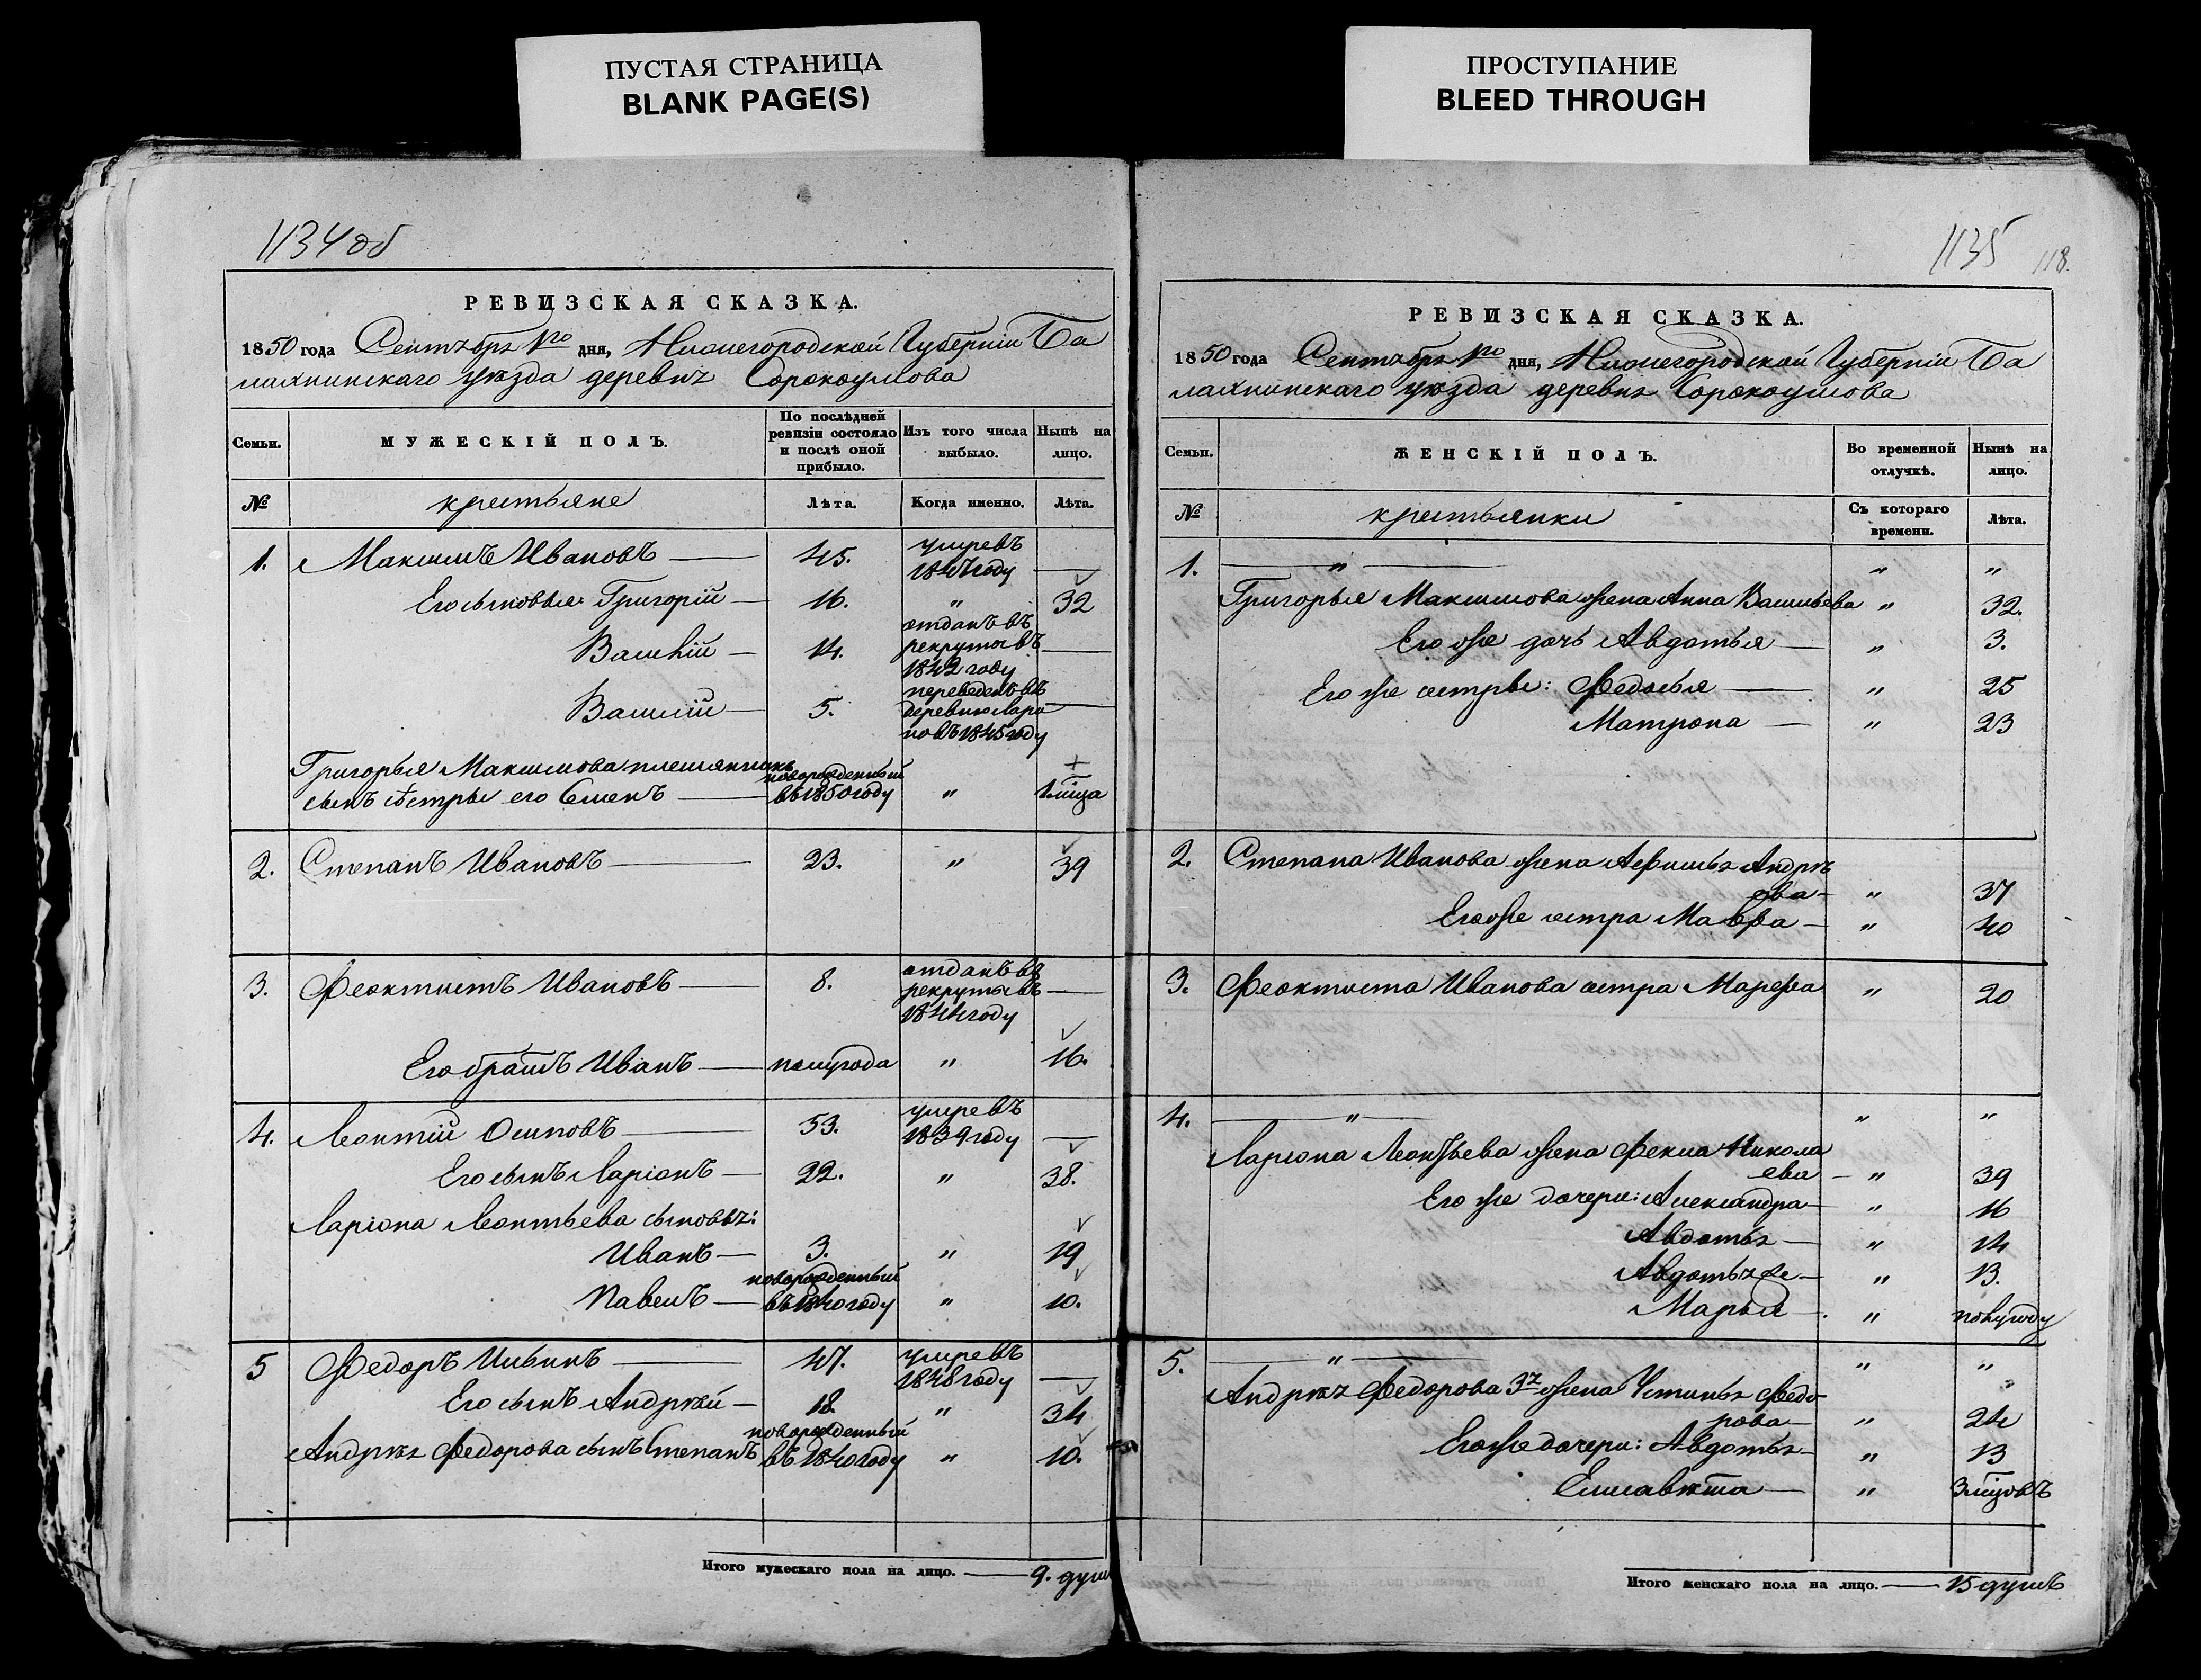 ПУСТАЯ СТРАНИЦА
BLANK PAGE(S)
ПРОСТУПАНИЕ
BLEED THROUGH
1134 об
РЕВИЗСКАЯ СКАЗКА.
1850 года Сентября 1го дня, Нижегородской Губернiи Ба
лахнинскаго уѣзда деревни Сорокоумова
Семьи.
МУЖЕСКІЙ ПОЛЪ.
По послѣдней ревизіи состояло и послѣ оной прибыло.
Изъ того числа выбыло.
Нынѣ на лицо.
№ крестьяне Лѣта. Когда именно. Лѣта.
1. Максимъ Ивановъ — 45. умревъ 1847 году —
Его сыновья: Григорій — 16. " 32
Василій — 14. отданъ въ рекруты въ 1842 году —
Василій — 5. переведенъ въ деревню Лари новъ 1845 году —
Григорья Максимова племянникъ
сынъ сестры его Семенъ — новорожденный въ 1850 году " 1 мца
2. Степанъ Ивановъ — 23. " 39
3. Феоктистъ Ивановъ — 8. отданъ въ рекруты въ 1844 году —
Его братъ Иванъ — полугода " 16.
4. Леонтій Осиповъ — 53. умревъ 1839 году —
Его сынъ Ларіонъ — 22. " 38.
Ларіона Леонтьева сыновья:
Иванъ — 3. " 19
Павелъ — новорожденный въ 1840 году " 10.
5 Федоръ Ильинъ — 47. умревъ 1848 году —
Его сынъ Андрѣй — 18. " 34
Андрѣя Федорова сынъ Степанъ новорожденный въ 1840 году " 10.
Итого мужескаго пола на лицо. — 9. душ
1135 118.
РЕВИЗСКАЯ СКАЗКА.
1850 года Сентября 1го дня, Нижегородской Губернiи Ба
лахнинскаго уѣзда деревня Сорокоумова
Семьи.
ЖЕНСКІЙ ПОЛЪ.
Во временной отлучкѣ.
Нынѣ на лицо.
№ крестьянки Съ котораго времени. Лѣта.
1. — " — " "
Григорья Максимова жена Анна Васильева " 32.
Его же дочь Авдотья — " 3.
Его же сестры: Федосья — " 25
Матрона — " 23
2. Степана Иванова жена Афимья Андрѣ
ева — " 37
Его же сестра Мавра — " 40
3. Феоктиста Иванова сестра Марфа " 20
4. — " — " "
Ларіона Леонтьева жена Фекла Никола
ева — " 39
Его же дочери: Александра — " 16
Авдотья — " 14
Авдотья же — " 13.
Марья — " полугоду
5. — " — " "
Андрѣя Федорова 3я жена Устинья Федо
рова — " 24
Его же дочери: Авдотья — " 13
Елисавѣта — " 3 мцовъ
Итого женскаго пола на лицо. — 15 душъ